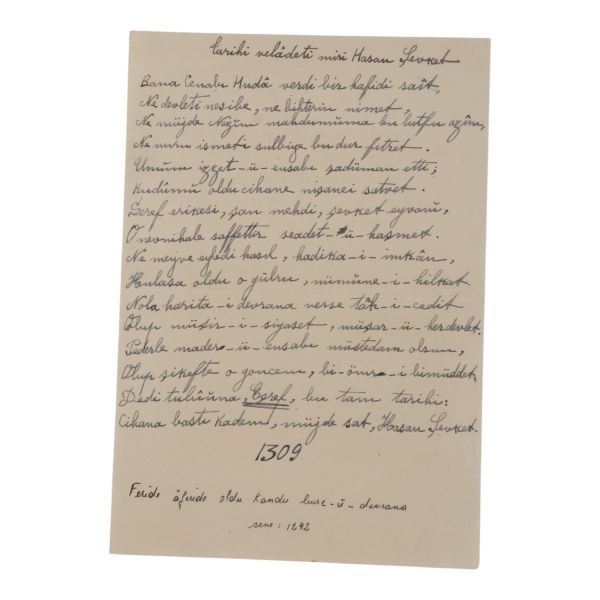 Tarihi velâdeti miri Hasan Şevket
Bana Cenabı Hudâ verdi bir hafidi saît,
Ne devleti nesibe, ne bihterin nimet,
Ne müjde Nazîm mahdumuma bu lutfu azîm,
Ne nuru ismeti sulbiye bu dur fıtret.
Umum izzet-ü-ensabı sadüman etti;
Kudûmü oldu cihane nişanei satvet.
Şeref erikesi, şan mehdi, şevket eyvanı,
O nevnihale saffettir seadet-ü-haşmet.
Ne meyve eyledi hasıl, hadika-i-imkân,
Hulâsa oldu o gülru, nümûne-i-hilkat
Nola harita-i devrana verse tâk-i-cedit
Olup müşir-i-siyaset, müşar-ü-herdevlet.
Pederle mader-ü-ensabı müstedam olsun,
Olup şikefte o goncem, bi-ömr-i bimüddet,
Dedi tulûûna, Eşref, bu tam tarihi:
Cihana bastı kadem, müjde sat, Hasan Şevket.
1309
Feride âferide oldu kandı burc-ü-devrana
sene: 1292